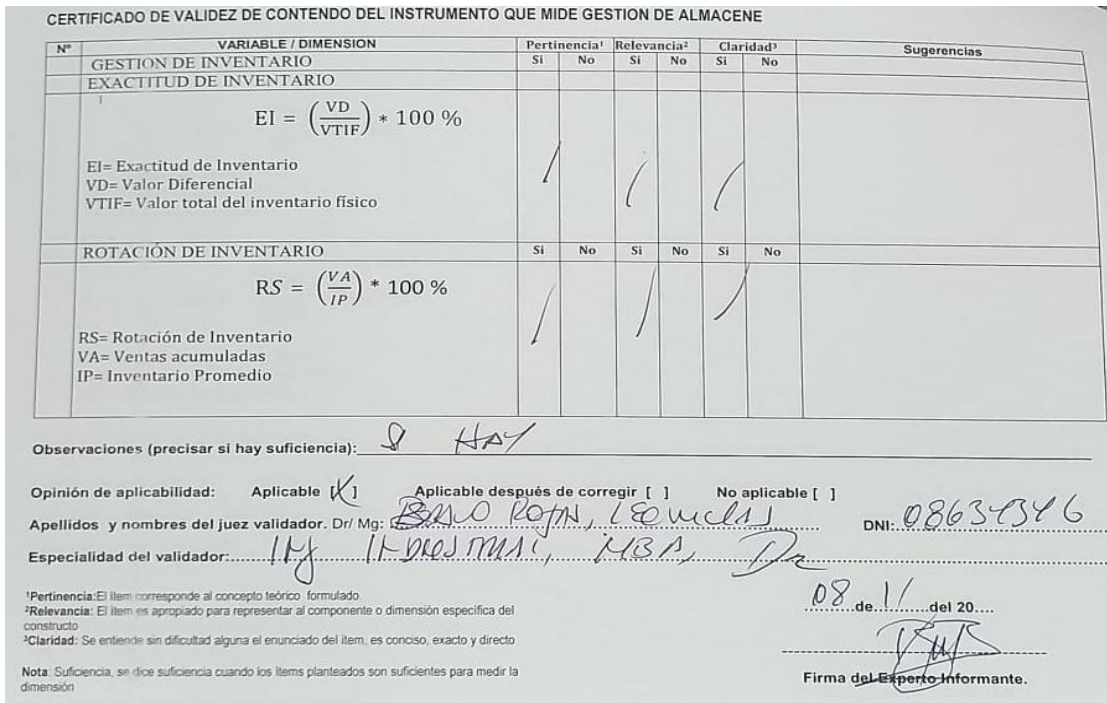 CERTIFICADO DE VALIDEZ DE CONTENDO DEL INSTRUMENTO QUE MIDE GESTION DE ALMACENE
Nº VARIABLE / DIMENSION Pertinencia¹ Relevancia² Claridad³ Sugerencias
GESTION DE INVENTARIO Si No Si No Si No
EXACTITUD DE INVENTARIO
1
EI = (VD/VTIF) * 100 %
EI= Exactitud de Inventario
VD= Valor Diferencial
VTIF= Valor total del inventario físico
ROTACIÓN DE INVENTARIO Si No Si No Si No
RS = (VA/IP) * 100 %
RS= Rotación de Inventario
VA= Ventas acumuladas
IP= Inventario Promedio
Observaciones (precisar si hay suficiencia): SI HAY
Opinión de aplicabilidad: Aplicable [X] Aplicable después de corregir [ ] No aplicable [ ]
Apellidos y nombres del juez validador. Dr/ Mg: DNI:
Especialidad del validador: Ing INDUSTRIAL, MBA, Dr
¹Pertinencia:El ítem corresponde al concepto teórico formulado.
²Relevancia: El ítem es apropiado para representar al componente o dimensión específica del
constructo
³Claridad: Se entiende sin dificultad alguna el enunciado del ítem, es conciso, exacto y directo
08 de 11 del 20....
Nota: Suficiencia, se dice suficiencia cuando los ítems planteados son suficientes para medir la
dimensión
Firma del Experto Informante.